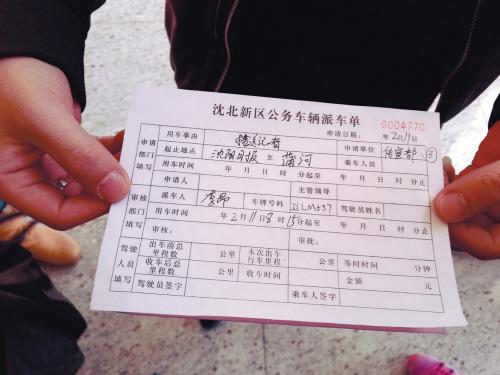 沈北新区公务车辆派车单
0004770
申请日期: 年2月11日
申请部门填写 用车事由 接送记者 申请单位 宣部 3
起止地点 沈阳日报 至 蒲河 乘车人员
用车时间 年 月 日 时 分起至 年 月 日 时 分止
申请人 主管领导
审核部门填写 派车人 车牌号码 驾驶员姓名
用车时间 年2月11日8时15分起至 年 月 日 时 分止
审核: 审批:
驾驶人员填写 出车前总里程数 公里 本次出车行车里程 公里 等时时间 分钟
收车后总里程数 公里 收车时间 金额 元
驾驶员签字 乘车人签字